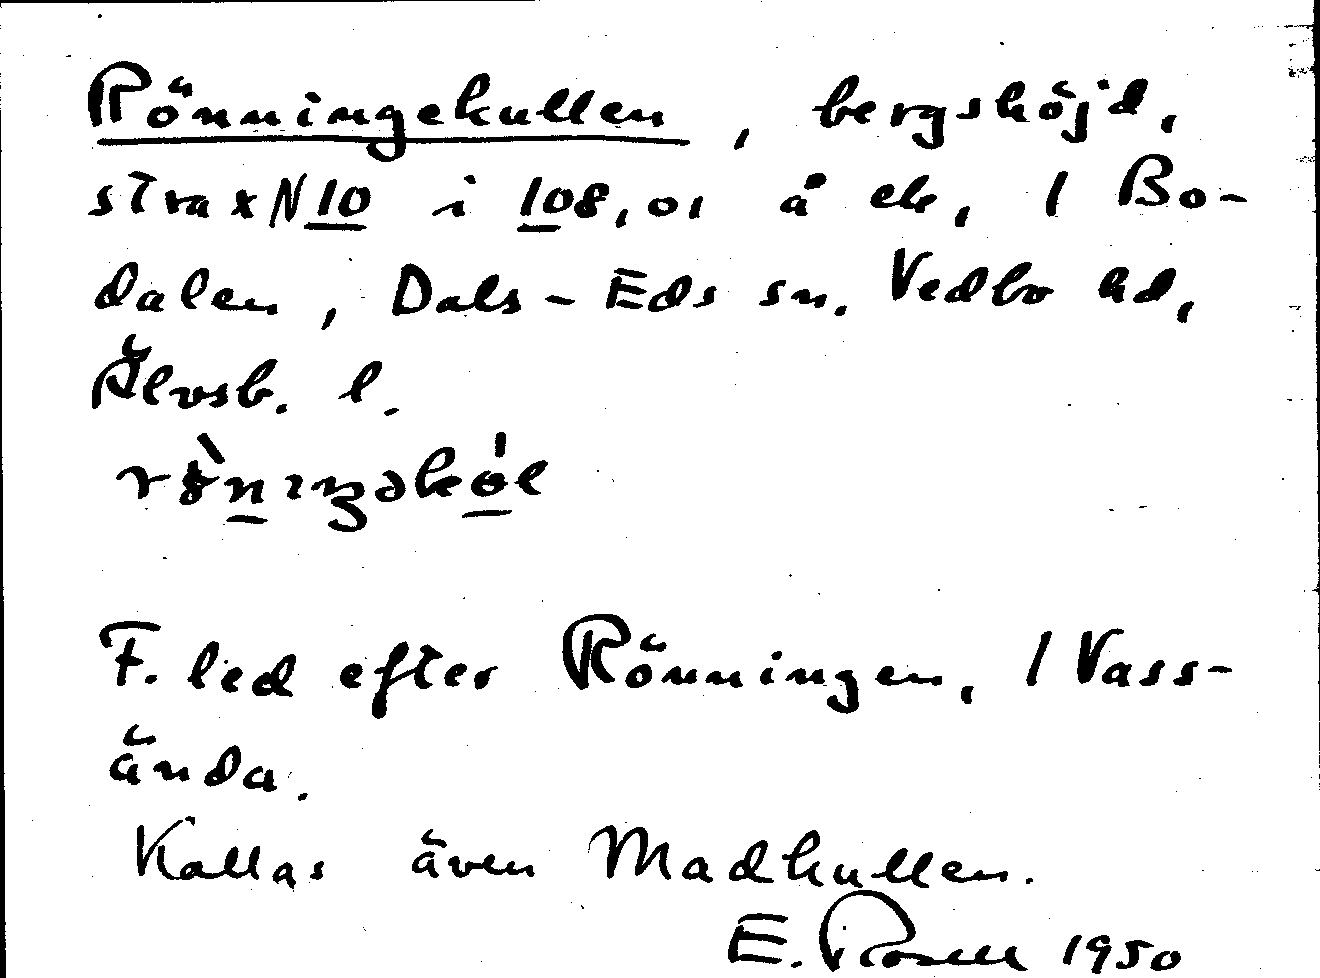 Rönningekullen, bergshöjd,
strax N 10 i 108,01 å ek, 1 Bo-
dalen, Dals-Eds sn. Vedbo hd,
Älvsb. l.
F. led efter Rönningen, 1 Vass-
ända.
Kallas även Madkullen.
E. Rosell 1950